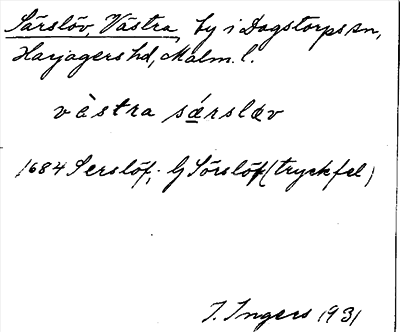 Särslöv, Västra, by i Dagstorps sn,
Harjagers hd, Malm. l.
västra særslæv
1684 Serslöf; G Sörslöf (tryckfel)
I. Ingers 1931